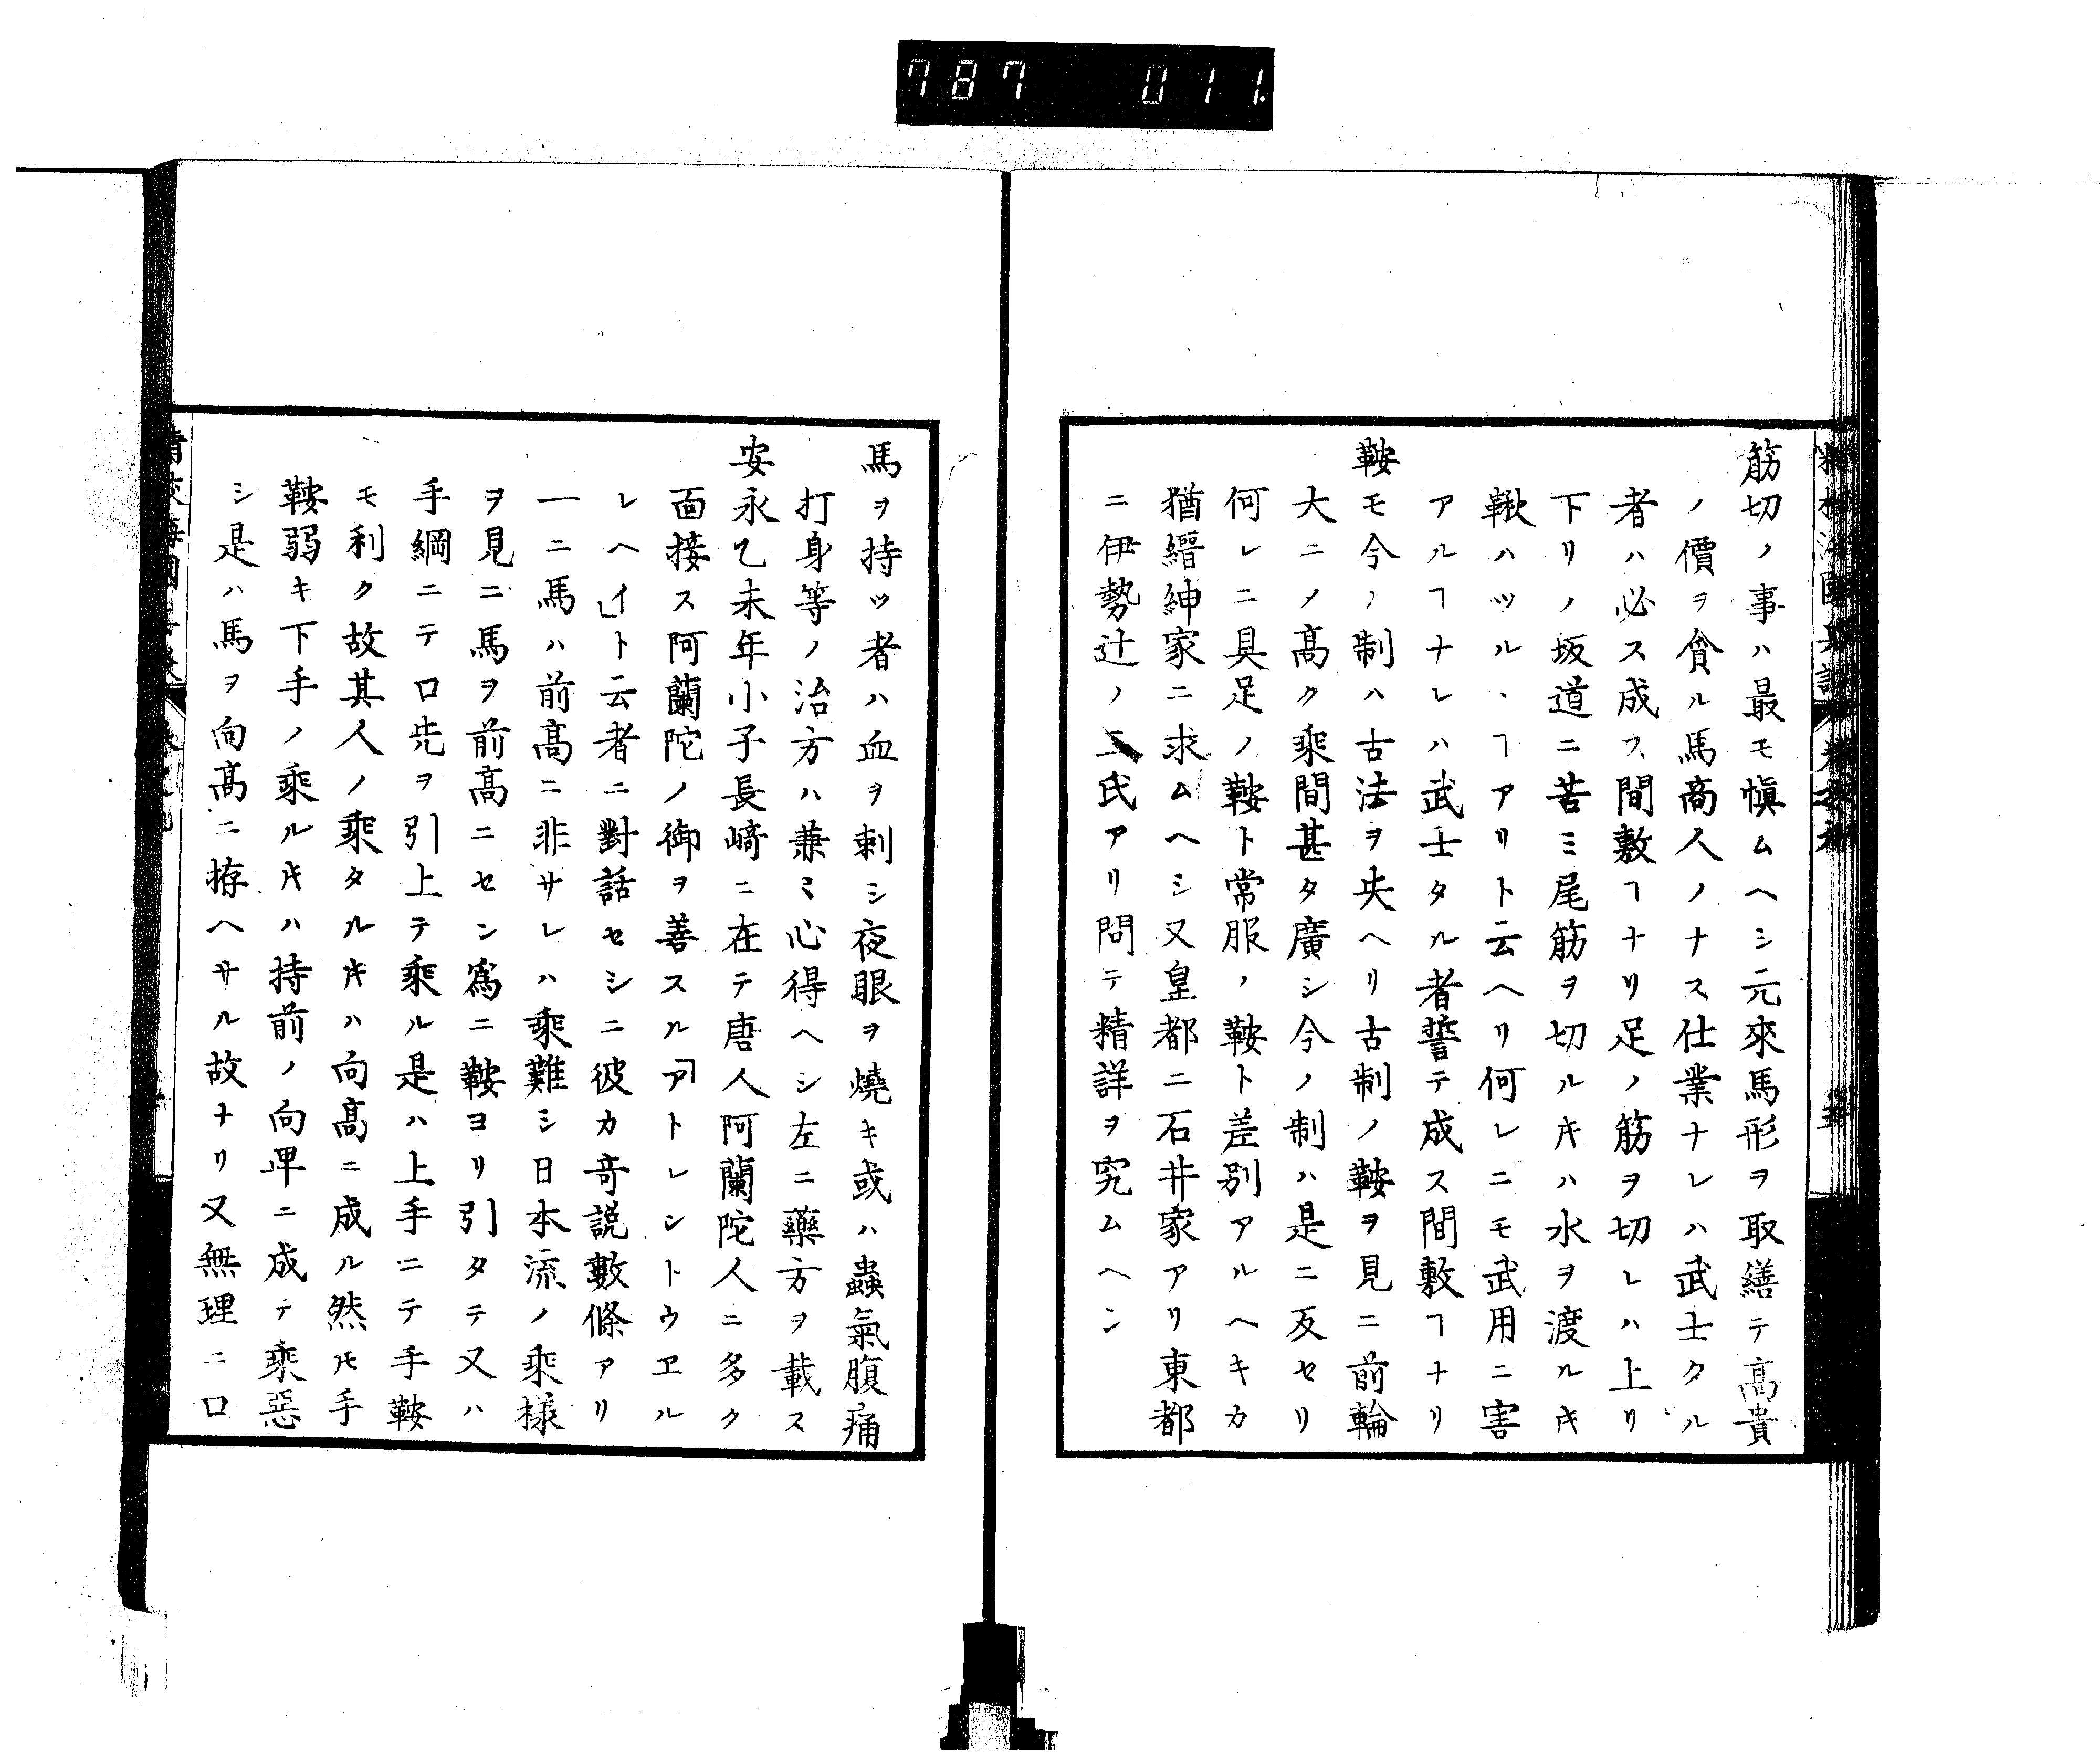 787 011.
筋切ノ事ハ最モ愼ムヘシ元來馬形ヲ取繕テ高貴
ノ價ヲ貪ル馬商人ノナス仕業ナレハ武士タル
者ハ必ス成ス間敷ヿナリ足ノ筋ヲ切レハ上リ
下リノ坂道ニ苦ミ尾筋ヲ切ルキハ水ヲ渡ルキ
鞦ハツルヽヿアリト云ヘリ何レニモ武用ニ害
アルヿナレハ武士タル者誓テ成ス間敷ヿナリ
鞍モ今ノ制ハ古法ヲ失ヘリ古制ノ鞍ヲ見ニ前輪
大ニノ高ク乘間甚タ廣シ今ノ制ハ是ニ反セリ
何レニ具足ノ鞍ト常服ノ鞍ト差別アルヘキカ
猶縉紳家ニ求ムヘシ又皇都ニ石井家アリ東都
ニ伊勢辻ノ二氏アリ問テ精詳ヲ究ムヘシ
馬ヲ持ツ者ハ血ヲ刺シ夜眼ヲ燒キ或ハ蟲氣腹痛
打身等ノ治方ハ兼ミ心得ヘシ左ニ藥方ヲ載ス
安永乙未年小子長崎ニ在テ唐人阿蘭陀人ニ多ク
面接ス阿蘭陀ノ御ヲ善スル「アトレントウヱル
レヘイ」ト云者ニ對話セシニ彼カ奇説數條アリ
一ニ馬ハ前高ニ非サレハ乘難シ日本流ノ乘樣
ヲ見ニ馬ヲ前高ニセン爲ニ鞍ヨリ引タテ又ハ
手綱ニテ口先ヲ引上テ乘ル是ハ上手ニテ手鞍
モ利ク故其人ノ乘タルキハ向高ニ成ル然ルモ手
鞍弱キ下手ノ乘ルキハ持前ノ向卑ニ成テ乘惡
シ是ハ馬ヲ向高ニ拵ヘサル故ナリ又無理ニ口